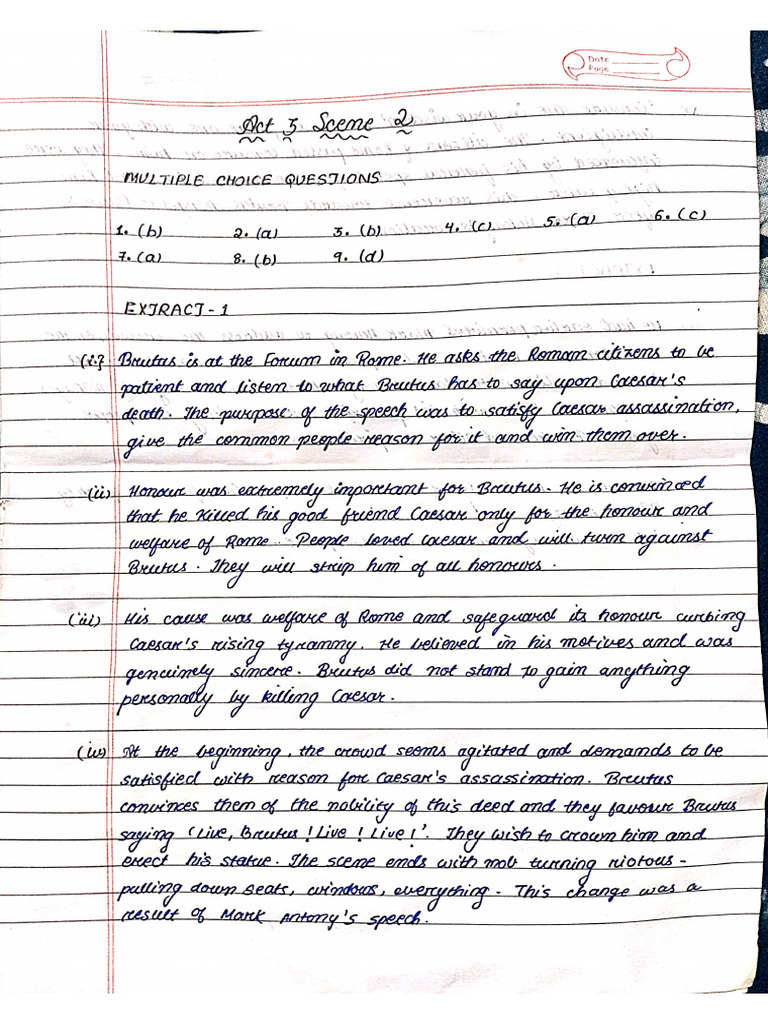 Date
Page
Act 3 Scene 2
MULTIPLE CHOICE QUESTIONS
1. (b) 2. (a) 3. (b) 4. (c) 5. (a) 6. (c)
7. (a) 8. (b) 9. (d)
EXTRACT - 1
(i) Brutus is at the Forum in Rome. He asks the Roman citizens to be
patient and listen to what Brutus has to say upon Caesar's
death. The purpose of the speech was to satisfy Caesar assassination,
give the common people reason for it and win them over.
(ii) Honour was extremely important for Brutus. He is convinced
that he killed his good friend Caesar only for the honour and
welfare of Rome. People loved Caesar and will turn against
Brutus. They will strip him of all honours.
(iii) His cause was welfare of Rome and safeguard its honour curbing
Caesar's rising tyranny. He believed in his motives and was
genuinely sincere. Brutus did not stand to gain anything
personally by killing Caesar.
(iv) At the beginning, the crowd seems agitated and demands to be
satisfied with reason for Caesar's assassination. Brutus
convinces them of the nobility of this deed and they favour Brutus
saying 'Live, Brutus! Live! Live!'. They wish to crown him and
erect his statue. The scene ends with mob turning riotous -
pulling down seats, windows, everything. This change was a
result of Mark Antony's speech.